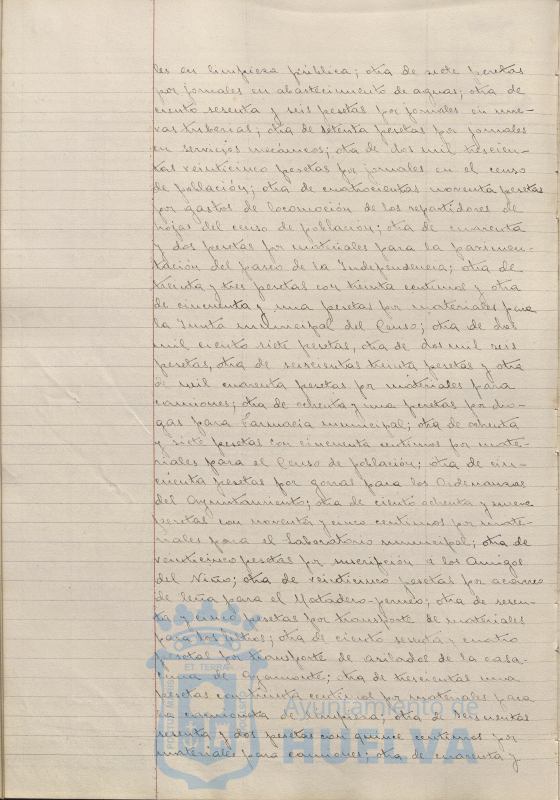 les en limpieza pública; otra de siete pesetas
por jornales en abastecimiento de aguas; otra de
ciento sesenta y seis pesetas por jornales en nue-
vas tuberias; otra de setenta pesetas por jornales
en servicios mecánicos; otra de dos mil trescien-
tas veinticinco pesetas por jornales en el censo
de población; otra de cuatrocientas noventa pesetas
por gastos de locomoción de los repartidores de
hojas del censo de población; otra de cuarenta
y dos pesetas por materiales para la pavimen-
tación del paseo de la Independencia; otra de
treinta y tres pesetas con treinta centimos y otra
de cincuenta y una pesetas por materiales para
la Junta municipal del Censo; otra de dos
mil ciento siete pesetas, otra de dos mil seis
pesetas, otra de seiscientas treinta pesetas y otra
de mil cuarenta pesetas por materiales para
camiones; otra de ochenta y una pesetas por dro-
gas para Farmacia municipal; otra de ochenta
y siete pesetas con cincuenta centimos por mate-
riales para el Censo de población; otra de cin-
cuenta pesetas por gorras para los Ordenanzas
del Ayuntamiento; otra de ciento ochenta y nueve
pesetas con noventa y cinco centimos por mate-
riales para el Laboratorio municipal; otra de
veinticinco pesetas por suscripción a los Amigos
del Niño; otra de veinticinco pesetas por acarreo
de leña para el Matadero; otra de sesen-
ta y cinco pesetas por transporte de materiales
para los; otra de ciento sesenta y cuatro
pesetas por transporte de asilados de la casa-
cuna de Ayamonte; otra de trescientas una
pesetas con treinta centimos por materiales para
la camioneta de limpieza; otra de seiscientas
sesenta y dos pesetas con quince centimos por
materiales para camiones; otra de cuarenta y
Ayuntamiento de
HUELVA